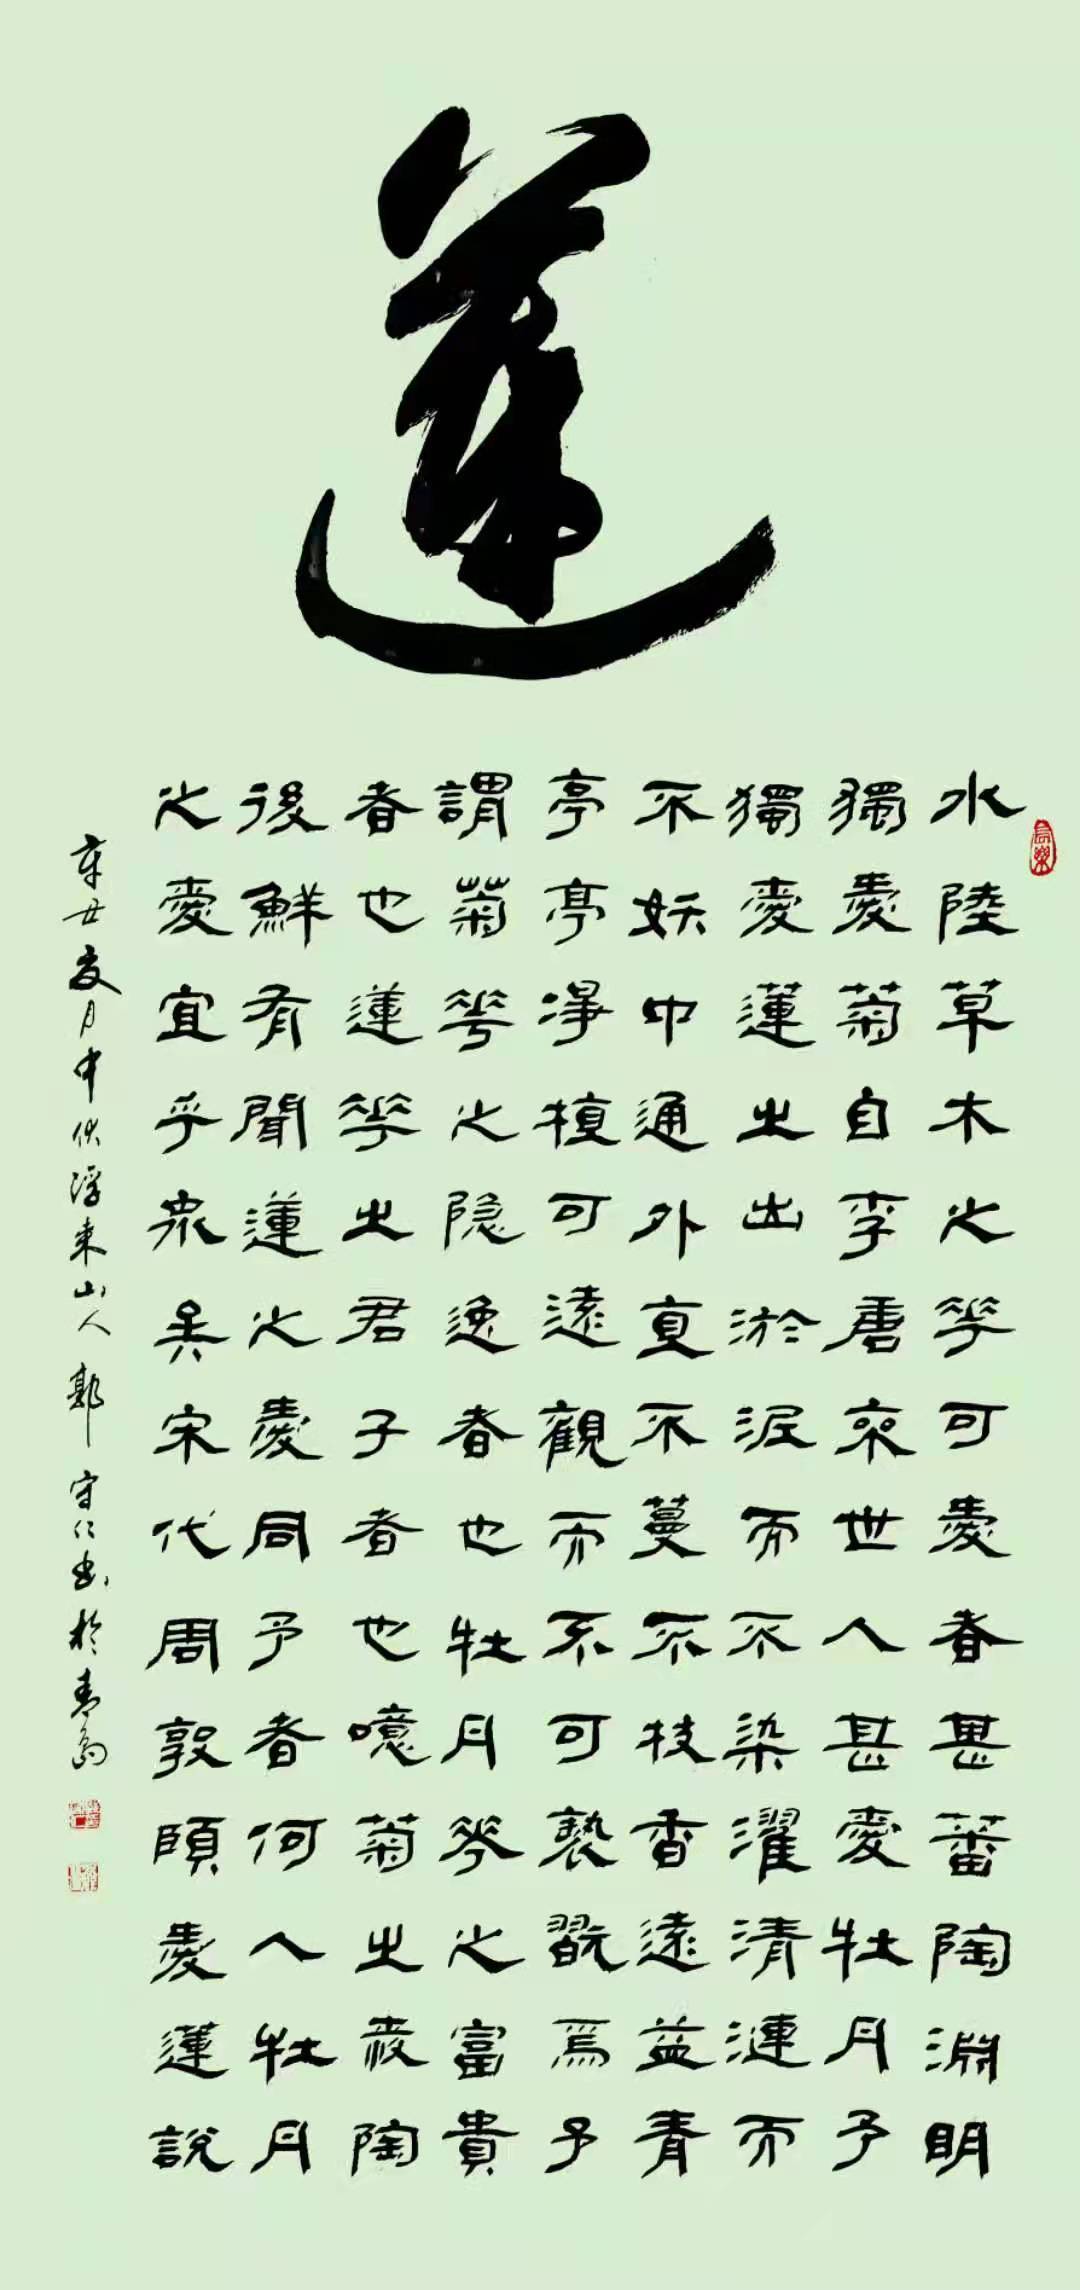 蓮
水陸草木之花可愛者甚蕃陶淵明
獨愛菊自李唐來世人甚愛牡丹予
獨愛蓮之出淤泥而不染濯清漣而
不妖中通外直不蔓不枝香遠益青
亭亭淨植可遠觀而不可褻翫焉予
謂菊花之隐逸者也牡丹花之富貴
者也蓮花之君子者也噫菊之愛陶
後鮮有聞蓮之愛同予者何人牡丹
之愛宜乎衆矣宋代周敦頤愛蓮說
辛丑夏月中伏浮来山人郭守仁书於青島